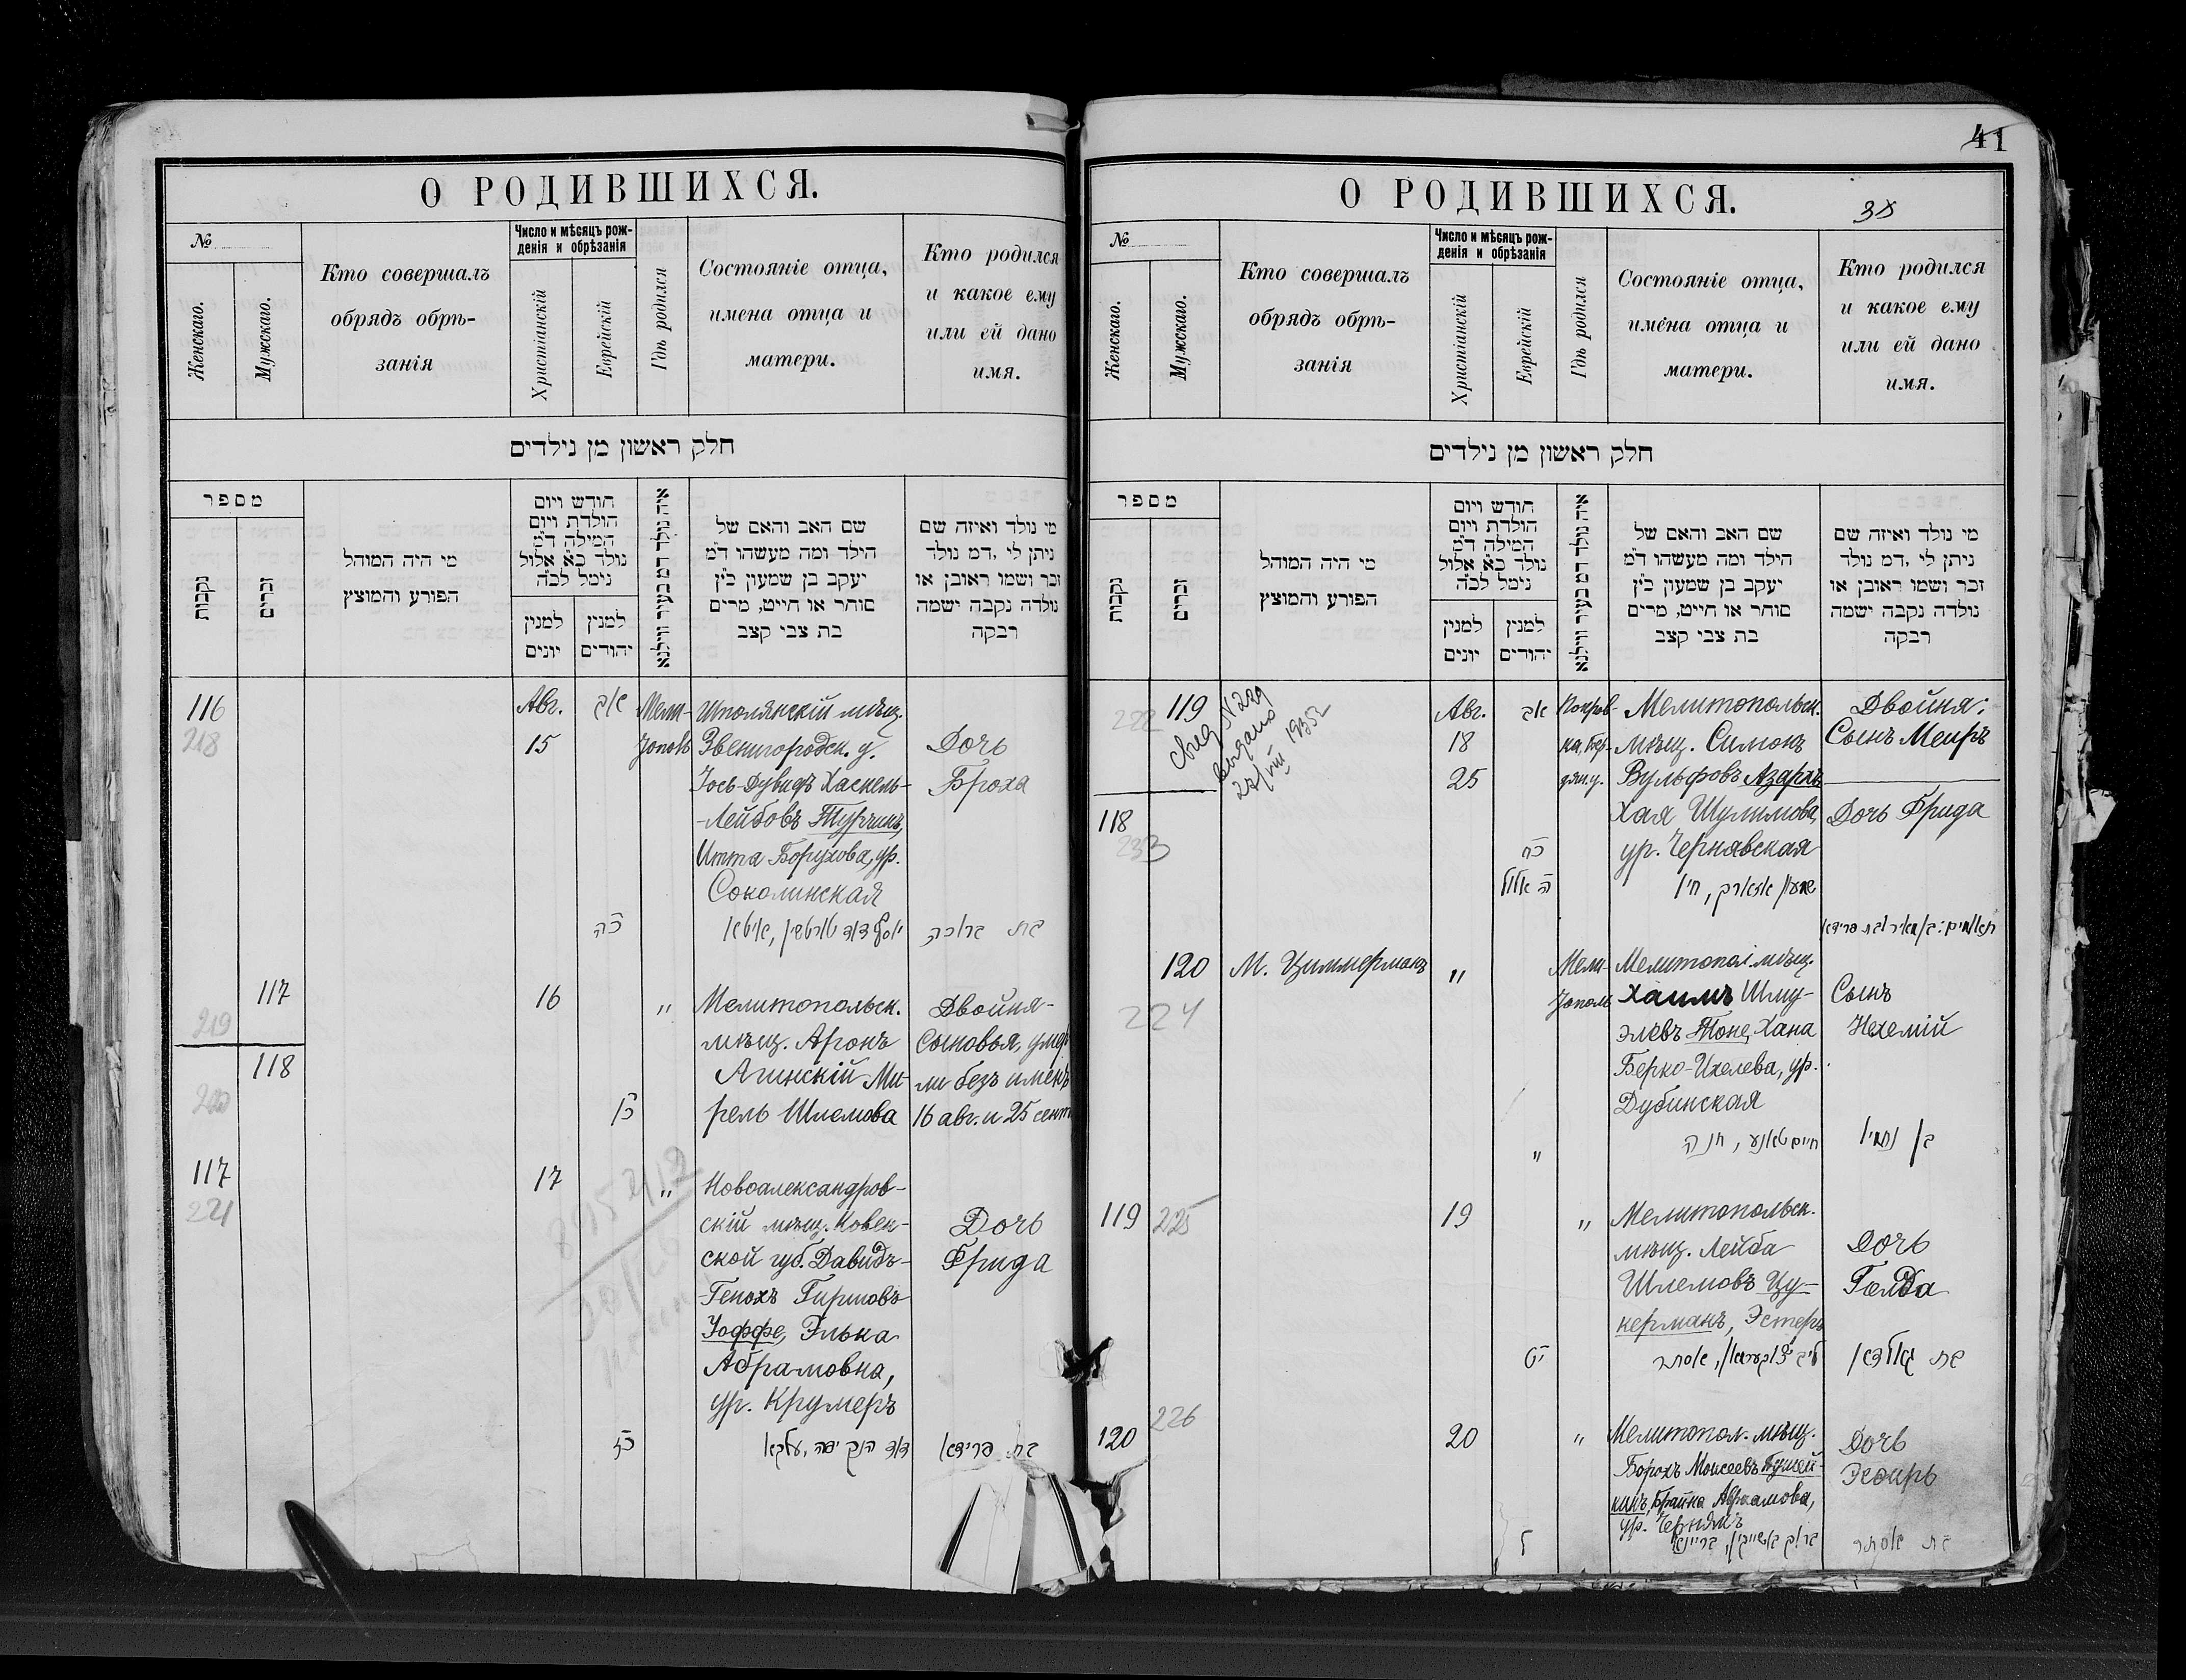 О РОДИВШИХСЯ.
№
Женскаго.
Мужскаго.
Кто совершалъ
обрядъ обрѣ-
занія
Число и мѣсяцъ рож-
денія и обрѣзанія
Христіанскій
Еврейскій
Гдѣ родился
Состояніе отца,
имена отца и
матери.
Кто родился
и какое ему
или ей дано
имя.
חלק ראשון מן נילדים
מספר
נקבות
זכרים
מי היה המוהל
הפורע והמוצץ
חודש ויום
הולדת ויום
המילה ד״מ
נולד כ״א אלול
נימל לכ״ה
למנין
יונים
למנין
יהודים
איה נולד דמ בעיר ווילנא
שם האב והאם של
הילד ומה מעשהו ד״מ
יעקב בן שמעון כ״ץ
סוחר או חייט, מרים
בת צבי קצב
מי נולד ואיזה שם
ניתן לי, דמ נולד
זכר ושמו ראובן או
נולדה נקבה ישמה
רבקה
116
218
Авг.
15
אב
כה
Мели-
тополь
Шполянскій мѣщ.
Звенигородск. у.
Іось-Дувидъ Хаскель-
-Лейбовъ Турчинъ,
Итта Борухова, ур.
Соколинская
יוסף דוד טורטשין, איטא
Дочь
Броха
בת ברוכה
117
219
118
220
16
כו
"
Мелитопольск.
мѣщ. Аронъ
Агинскій Ми-
рель Шлемова
Двойня-
Сыновья, умер
ли безъ именъ
16 авг. и 25 сент
117
221
17
כז
"
Новоалександров-
скій мѣщ. Ковен-
ской губ. Давидъ-
-Генохъ Гиршовъ
Іоффе, Элька
Абрамовна,
ур. Крумеръ
דוד הנך יפה, עלקא
Дочь
Фрида
בת פרידא
41
О РОДИВШИХСЯ.
38
№
Женскаго.
Мужскаго.
Кто совершалъ
обрядъ обрѣ-
занія
Число и мѣсяцъ рож-
денія и обрѣзанія
Христіанскій
Еврейскій
Гдѣ родился
Состояніе отца,
имена отца и
матери.
Кто родился
и какое ему
или ей дано
имя.
חלק ראשון מן נילדים
מספר
נקבות
זכרים
מי היה המוהל
הפורע והמוצץ
חודש ויום
הולדת ויום
המילה ד״מ
נולד כ״א אלול
נימל לכ״ה
למנין
יונים
למנין
יהודים
איה נולד דמ בעיר ווילנא
שם האב והאם של
הילד ומה מעשהו ד״מ
יעקב בן שמעון כ״ץ
סוחר או חייט, מרים
בת צבי קצב
מי נולד ואיזה שם
ניתן לי, דמ נולד
זכר ושמו ראובן או
נולדה נקבה ישמה
רבקה
119
222
118
233
свид N 229
выдано
27/VIII 1935г
Авг.
18
25
אב
כח
ה אלול
Покров-
ка, Бер-
дян. у.
Мелитопольск.
мѣщ. Симонъ
Вульфовъ Азархъ
Хая Шулимова,
ур. Чернявская
שמעון אזארק, חיו
Двойня;
Сынъ Меиръ
Дочь Фрида
תאומים: בן מאיר ובת פרידא
120
224
М. Циммерманъ
"
"
Мели-
тополь
Мелитопол. мѣщ.
Хаимъ Шму-
элевъ Тоне, Хана
Берко-Ихелева, ур.
Дубинская
חיים טאנע, חנה
Сынъ
Нехемій
בן נחמי׳
119
225
19
יט
"
Мелитопольск.
мѣщ. Лейба
Шлемовъ Цу-
керманъ, Эстеръ
ליב צוקערמאן, אסתר
Дочь
Голда
בת גאלדא
120
226
20
ל
"
Мелитопол. мѣщ.
Борохъ Моисеевъ
Брайна Абрамова,
ур. Чернякъ
Дочь
Эсѳирь
בת אסתר